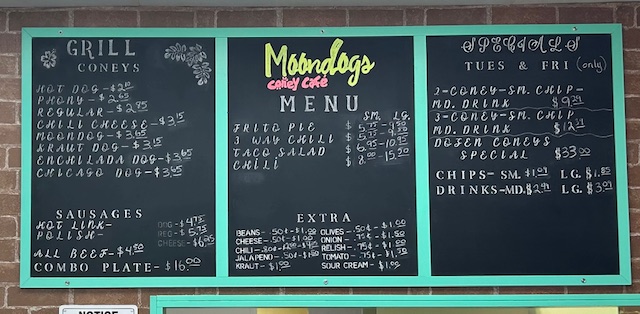 GRILL
CONEYS
HOT DOG-
PHONY-$2.65
REGULAR-$2.75
CHILI CHEESE-$3.15
MOONDOG-$3.65
KRAUT DOG-$3.15
ENCHILADA DOG-$3.65
CHICAGO DOG-$3.65
SAUSAGES
HOT LINK-
POLISH-
DOG-$4.75
REG-$5.75
CHEESE-$6.25
ALL BEEF-$4.80
COMBO PLATE-$16.00
Moondogs
Coney Cafe
MENU
SM. LG.
FRITO PIE
3 WAY CHILI
TACO SALAD
CHILI
EXTRA
BEANS-.50¢-$1.00
CHEESE-.50¢-$1.00
CHILI-
JALAPENO-.50¢-$1.00
KRAUT-$1.00
OLIVES-.50¢-$1.00
ONION-.75¢-$1.50
RELISH-.75¢-$1.00
TOMATO-.75¢-$1.50
SOUR CREAM-$1.00
SPECIALS
TUES & FRI (only)
2-CONEY-SM. CHIP-
MD. DRINK
3-CONEY-SM. CHIP
MD. DRINK
DOZEN CONEYS
SPECIAL $33.00
CHIPS-SM. LG. $1.85
DRINKS-MD. LG.
NOTICE